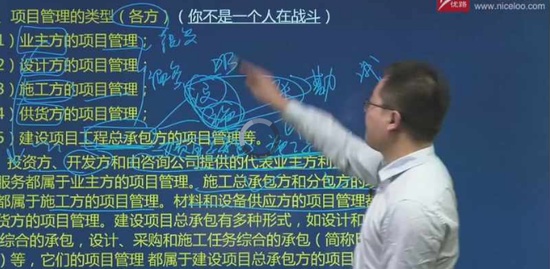 优路 www.niceloo.com
项目管理的类型（各方）（你不是一个人在战斗）
1）业主方的项目管理；
2）设计方的项目管理；
3）施工方的项目管理；
4）供货方的项目管理；
5）建设项目工程总承包方的项目管理等。
投资方、开发方和由咨询公司提供的代表业主方利
服务都属于业主方的项目管理。施工总承包方和分包方的
都属于施工方的项目管理。材料和设备供应方的项目管理都
货方的项目管理。建设项目总承包有多种形式，如设计和
综合的承包，设计、采购和施工任务综合的承包（简称
）等，它们的项目管理 都属于建设项目总承包方的项目